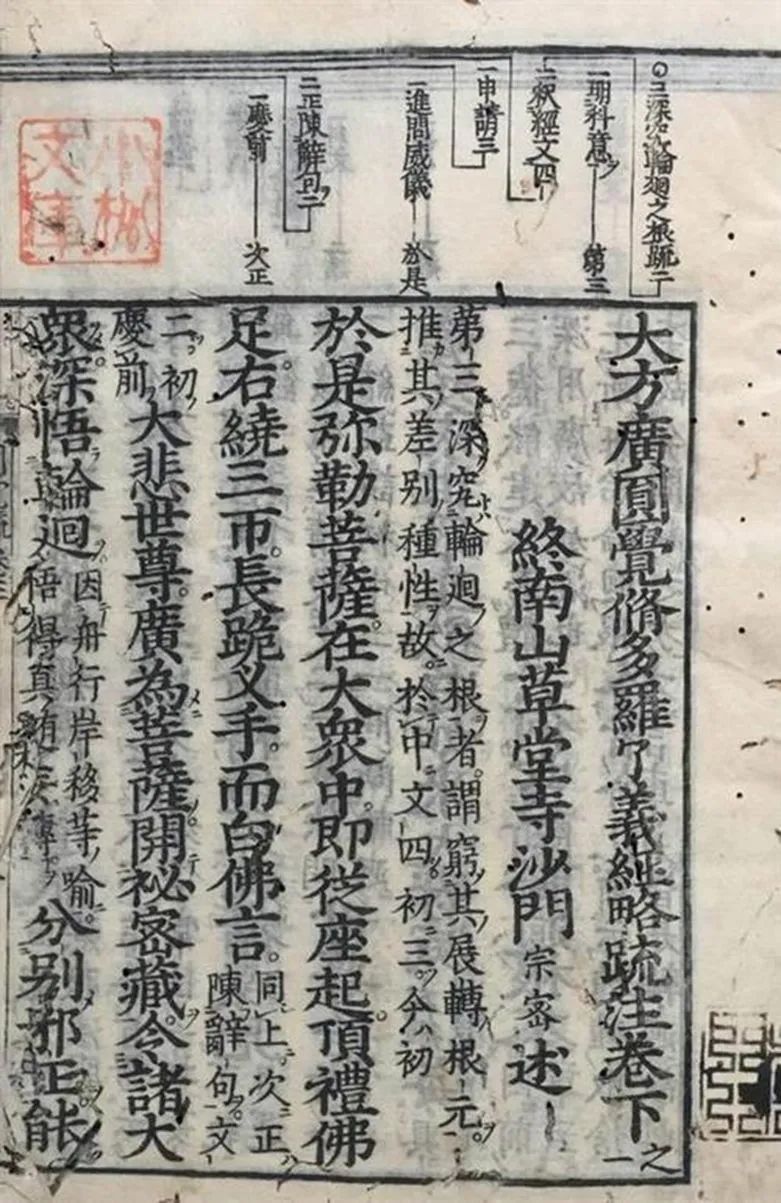 ○三深究輪廻之根䟽二
一明科意ヲ 第三
二釈經文四
一申請三
一進問威儀 於是
二正陳辞句二
一慶前 次正
小汀文庫
大方廣圓覺脩多羅了義經略䟽注卷下之一
終南山草堂寺沙門 宗密 述
第三深究輪廻之根者。謂窮其展轉根元。
推其差別種性故。於中文四。初三。今初
於是弥勒菩薩。在大衆中。即從座起。頂禮佛
足。右繞三帀。長跪叉手。而白佛言。同上。次正陳辭句文
二。初慶前大悲世尊。廣為菩薩。開祕密藏。令諸大
衆。深悟輪迴。因舟行岸移等喻。悟得真 分別邪正。能